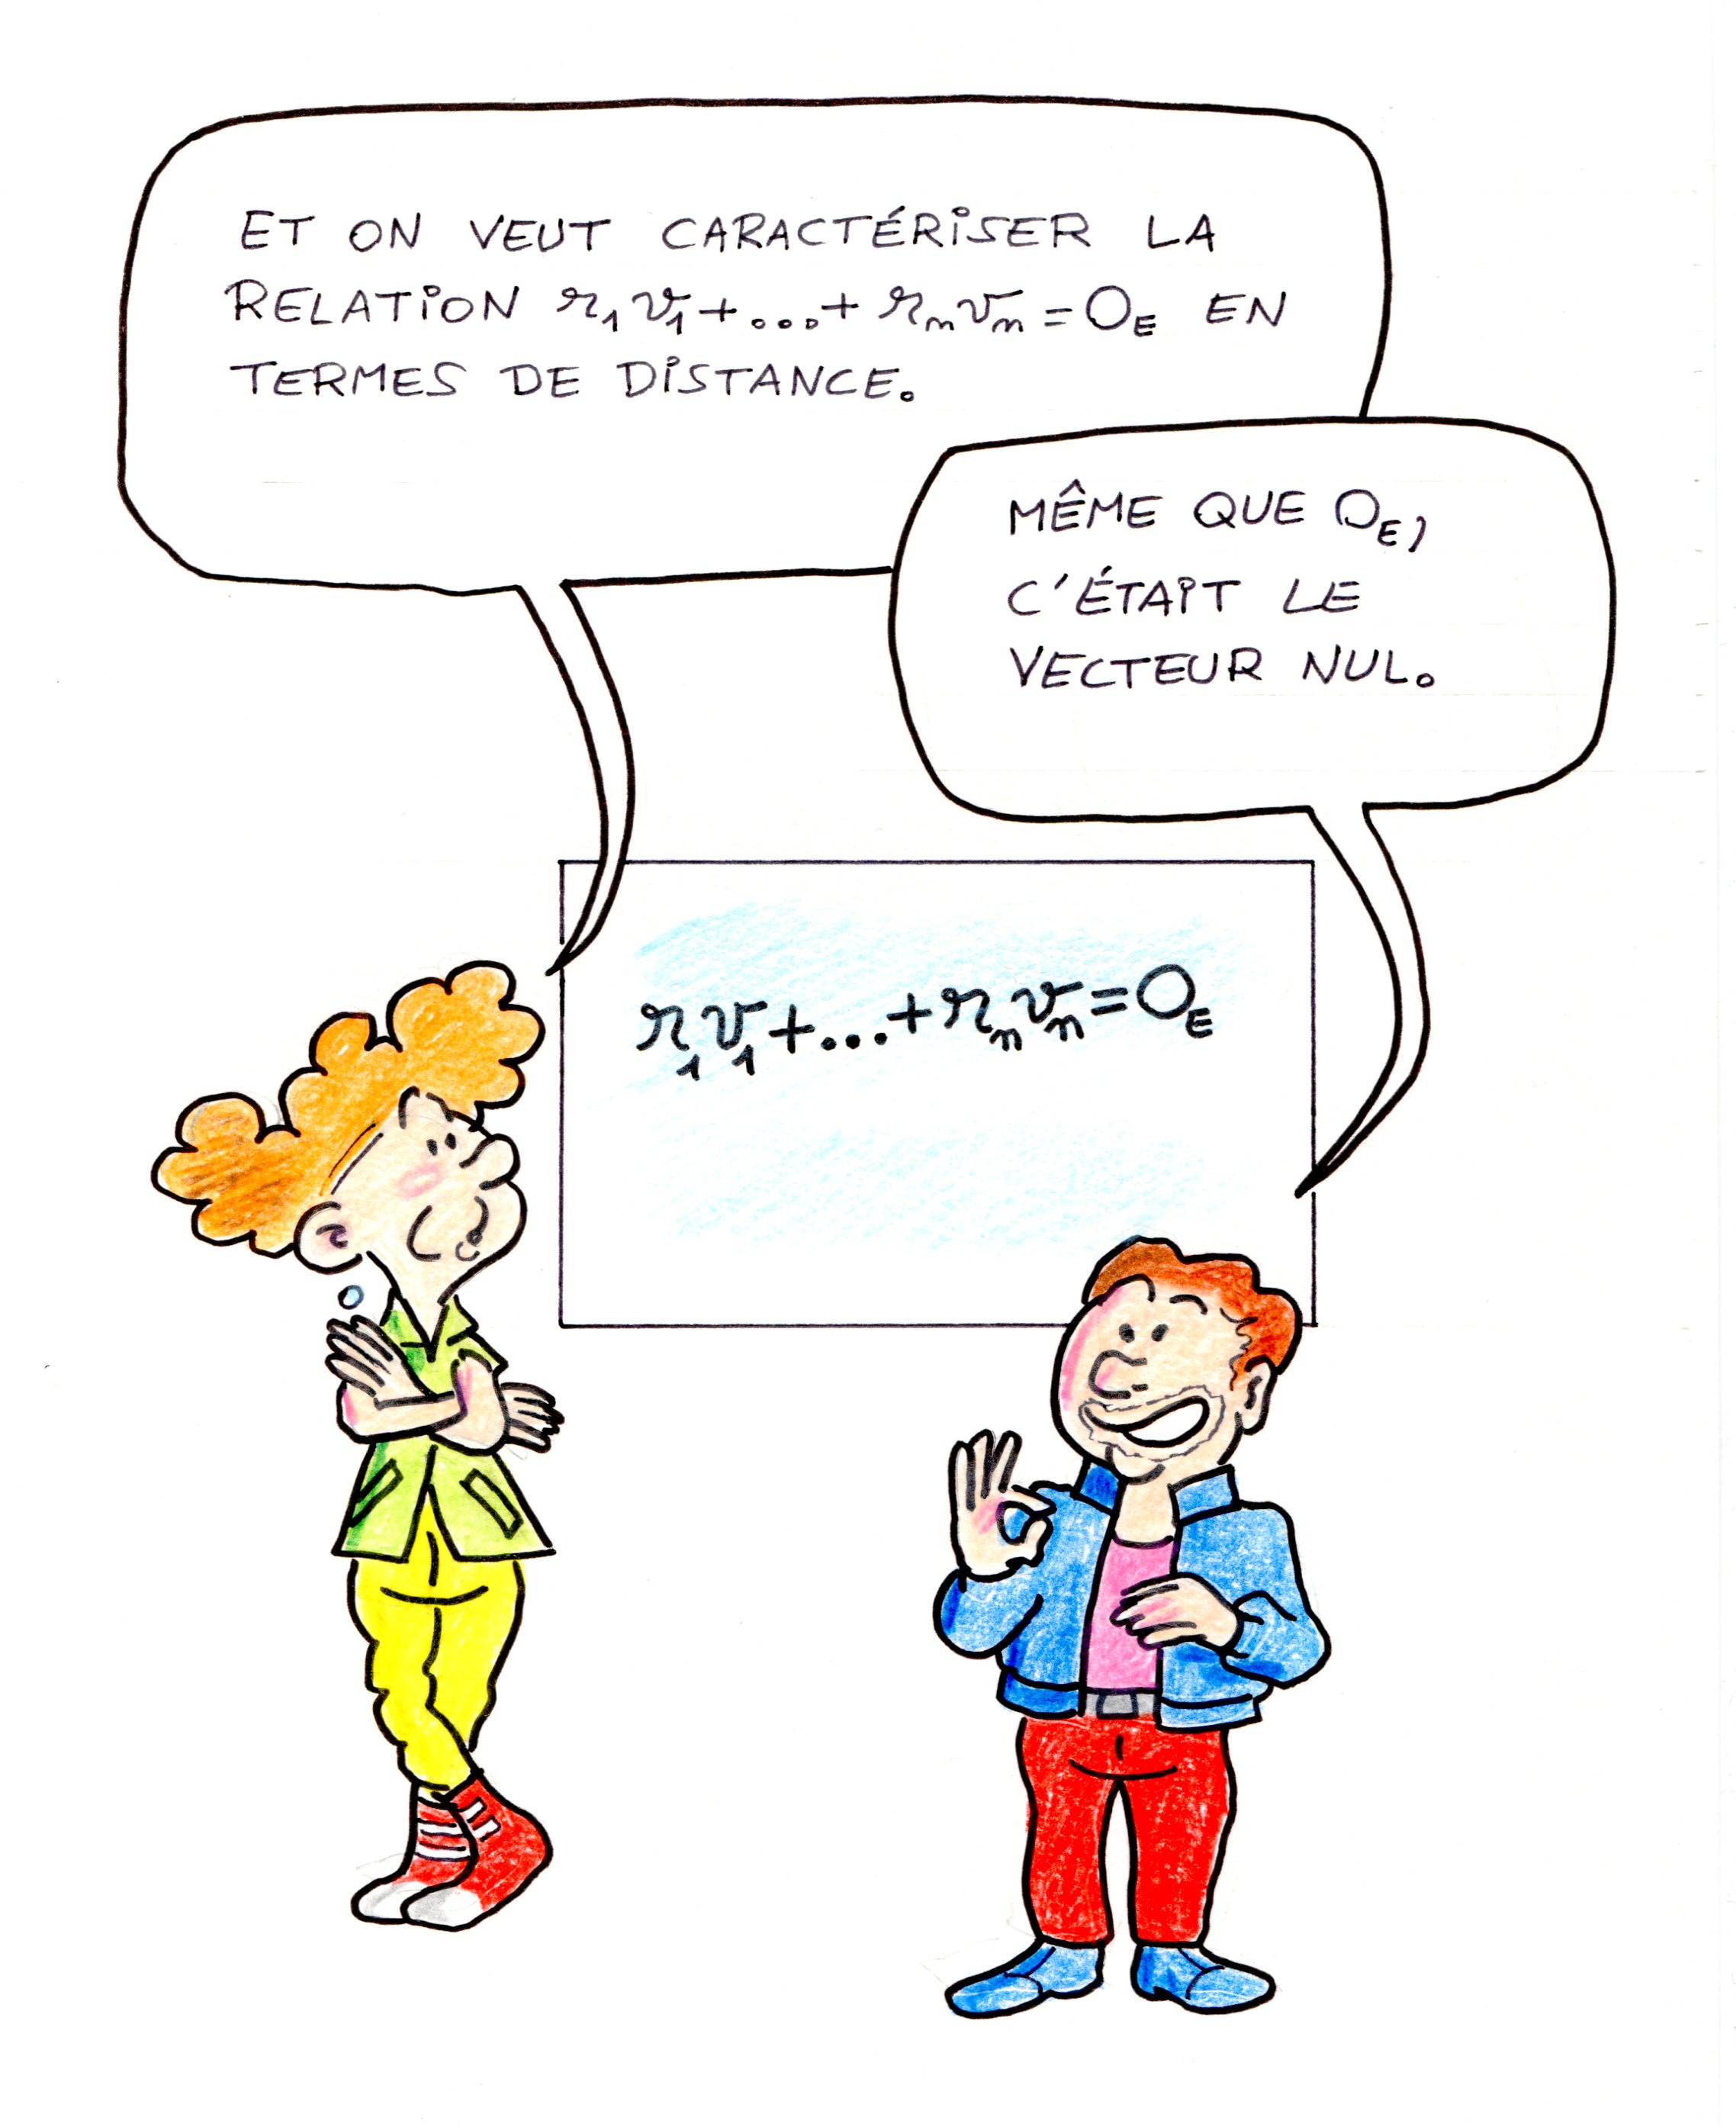 ET ON VEUT CARACTÉRISER LA
RELATION r₁v₁+...+ rₙvₙ = 0_E EN
TERMES DE DISTANCE.
MÊME QUE 0_E,
C'ÉTAIT LE
VECTEUR NUL.
r₁v₁+...+rₙvₙ=0_E